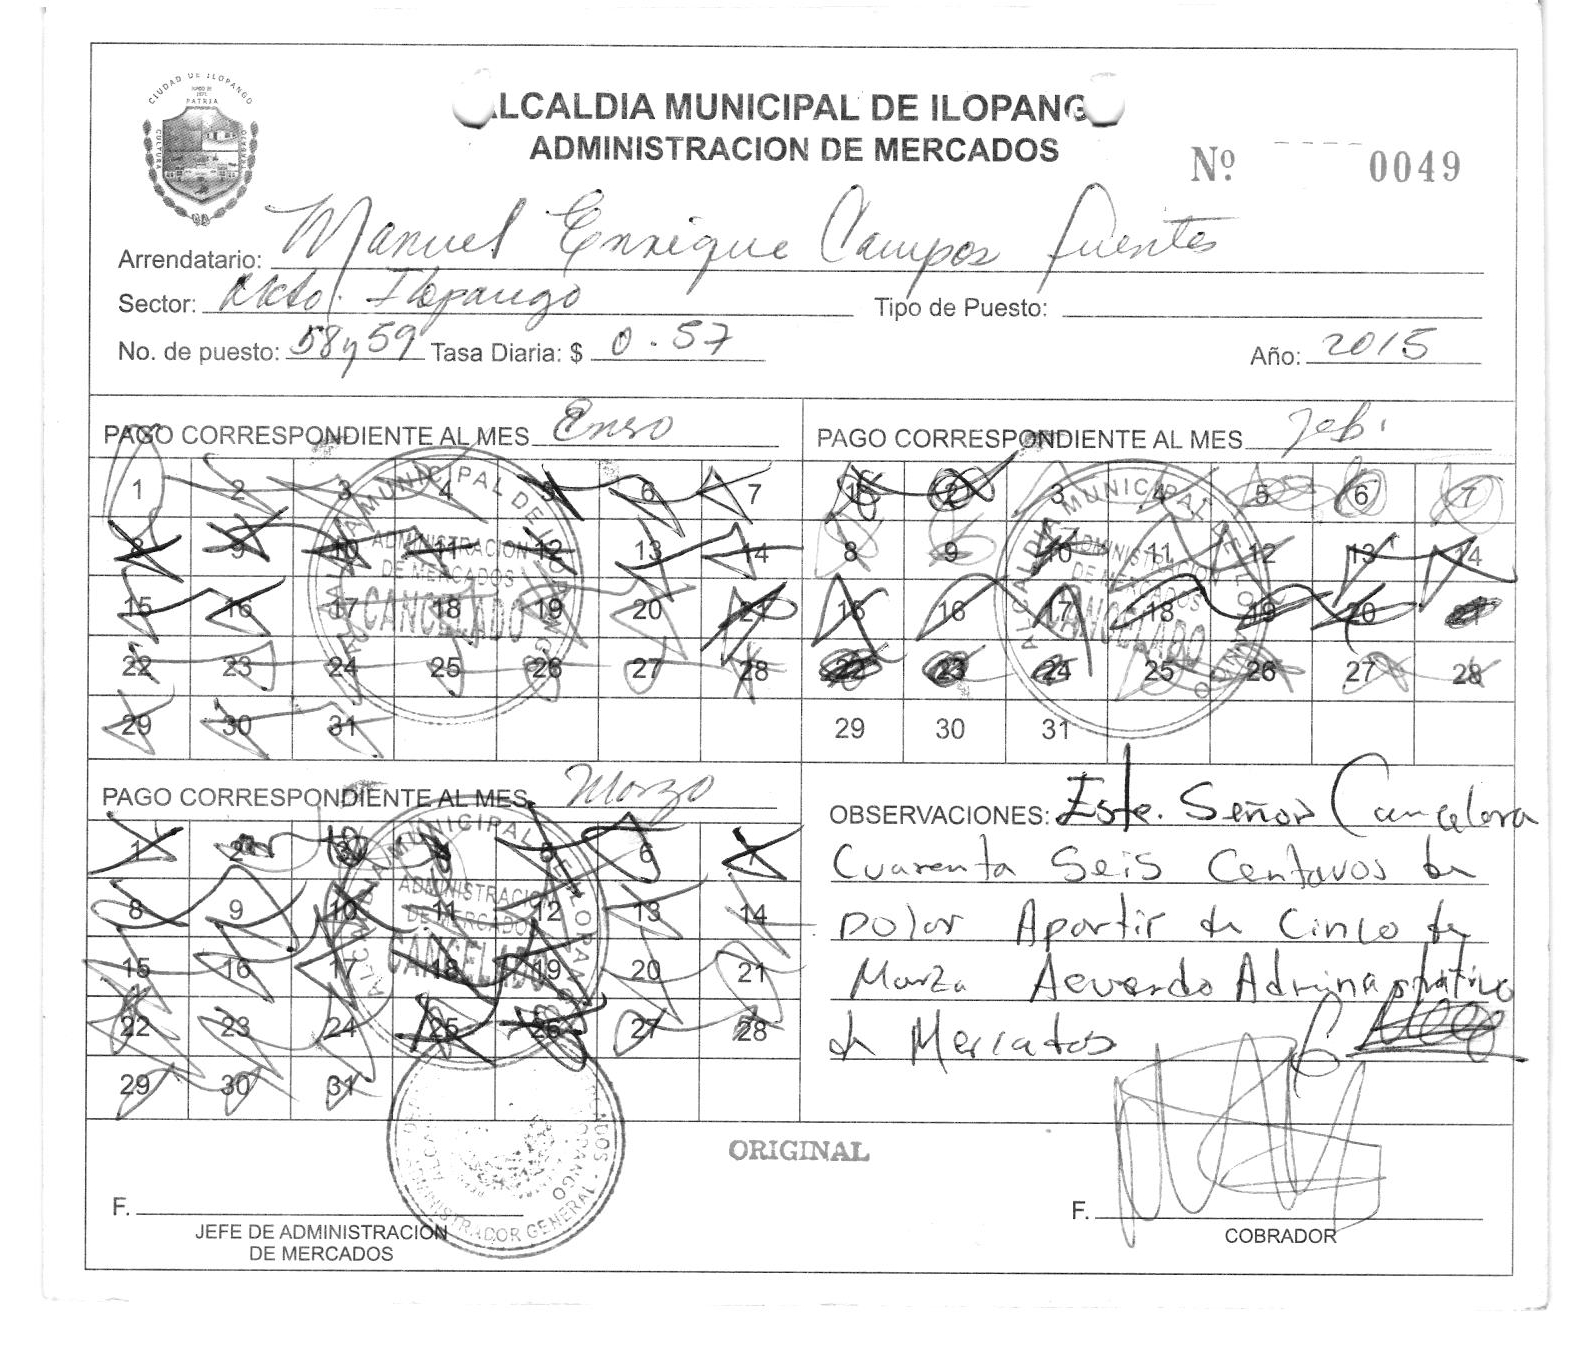 CIUDAD DE ILOPANGO
PATRIA
CULTURA
ALCALDIA MUNICIPAL DE ILOPANGO
ADMINISTRACION DE MERCADOS
Nº 0049
Arrendatario: Manuel Enrique Campos fuentes
Sector: Mcdo. Ilopango Tipo de Puesto:
No. de puesto: 58 y 59 Tasa Diaria: $ 0.57 Año: 2015
PAGO CORRESPONDIENTE AL MES Enero
1 2 3 4 5 6 7
8 9 10 11 12 13 14
15 16 17 18 19 20 21
22 23 24 25 26 27 28
29 30 31
ALCALDIA MUNICIPAL DE ILOPANGO
ADMINISTRACION
DE MERCADOS
CANCELADO
PAGO CORRESPONDIENTE AL MES Feb.
1 2 3 4 5 6 7
8 9 10 11 12 13 14
15 16 17 18 19 20 21
22 23 24 25 26 27 28
29 30 31
ALCALDIA MUNICIPAL DE ILOPANGO
ADMINISTRACION
DE MERCADOS
CANCELADO
PAGO CORRESPONDIENTE AL MES Marzo
1 2 3 4 5 6 7
8 9 10 11 12 13 14
15 16 17 18 19 20 21
22 23 24 25 26 27 28
29 30 31
ALCALDIA MUNICIPAL DE ILOPANGO
ADMINISTRACION
DE MERCADOS
CANCELADO
OBSERVACIONES: Este. Señor Cancelara
Cuarenta Seis Centavos de
Dolar Apartir de Cinco de
Marzo Acuerdo Administrativo
de Mercados
ORIGINAL
F.
JEFE DE ADMINISTRACION
DE MERCADOS
ADMINISTRADOR GENERAL
F.
COBRADOR